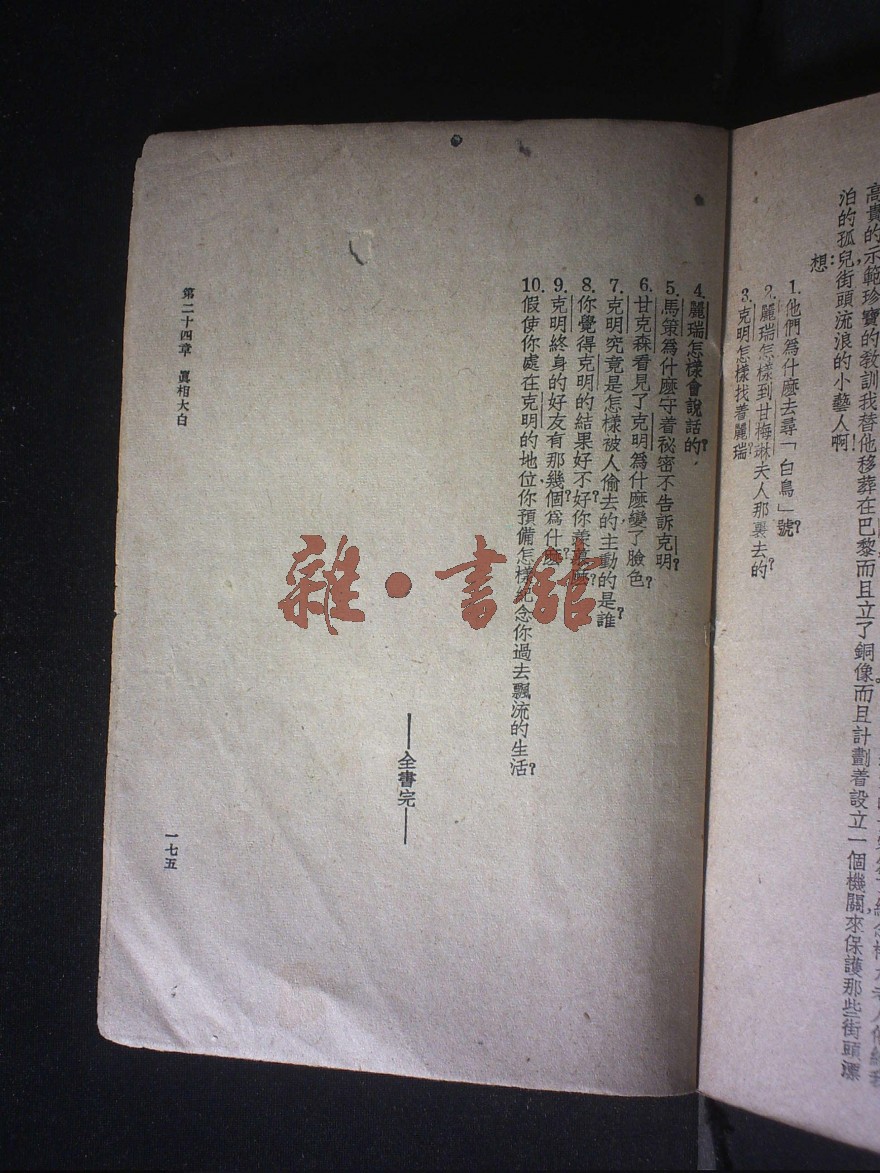 高貴的示範珍寶的教訓我替他移葬在巴黎而且立了銅像。而且計劃着設立一個機關來保護那些街頭漂
泊的孤兒街頭流浪的小藝人啊！
想：
1. 他們爲什麽去尋「白鳥」號？
2. 麗瑞怎樣到甘梅琳夫人那裏去的？
3. 克明怎樣找着麗瑞？
4. 麗瑞怎樣會說話的？
5. 馬策爲什麽守着祕密不告訴克明？
6. 甘克森看見了克明爲什麽變了臉色？
7. 克明究竟是怎樣被人偷去的主動的是誰？
8. 你覺得克明的結果好不好？你羨慕嗎？
9. 克明終身的好友有那幾個？爲什麽？
10. 假使你處在克明的地位你預備怎樣紀念你過去飄流的生活？
——全書完——
第二十四章 眞相大白
一七五
雜·書舘